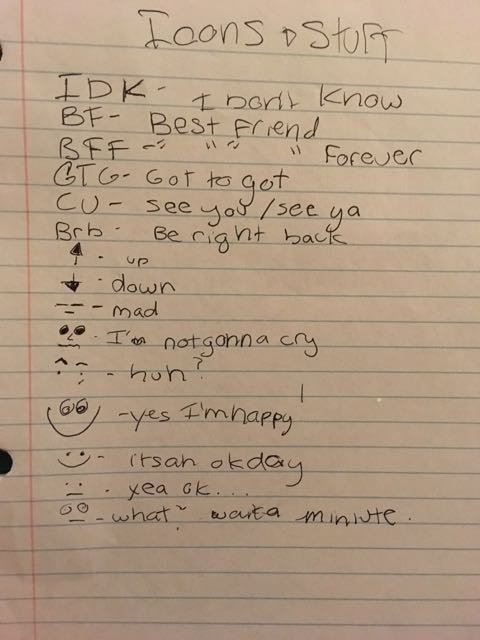 Icons & Stuff
IDK - I Don't Know
BF - Best Friend
BFF - " " " " Forever
GTG - Got to got
CU - see you / see ya
Brb - Be right back
↑ - up
↓ - down
-- - mad
- I'm not gonna cry
- huh?
- yes I'm happy!
- itsan okday
- yea ok...
- what? waita miniute.